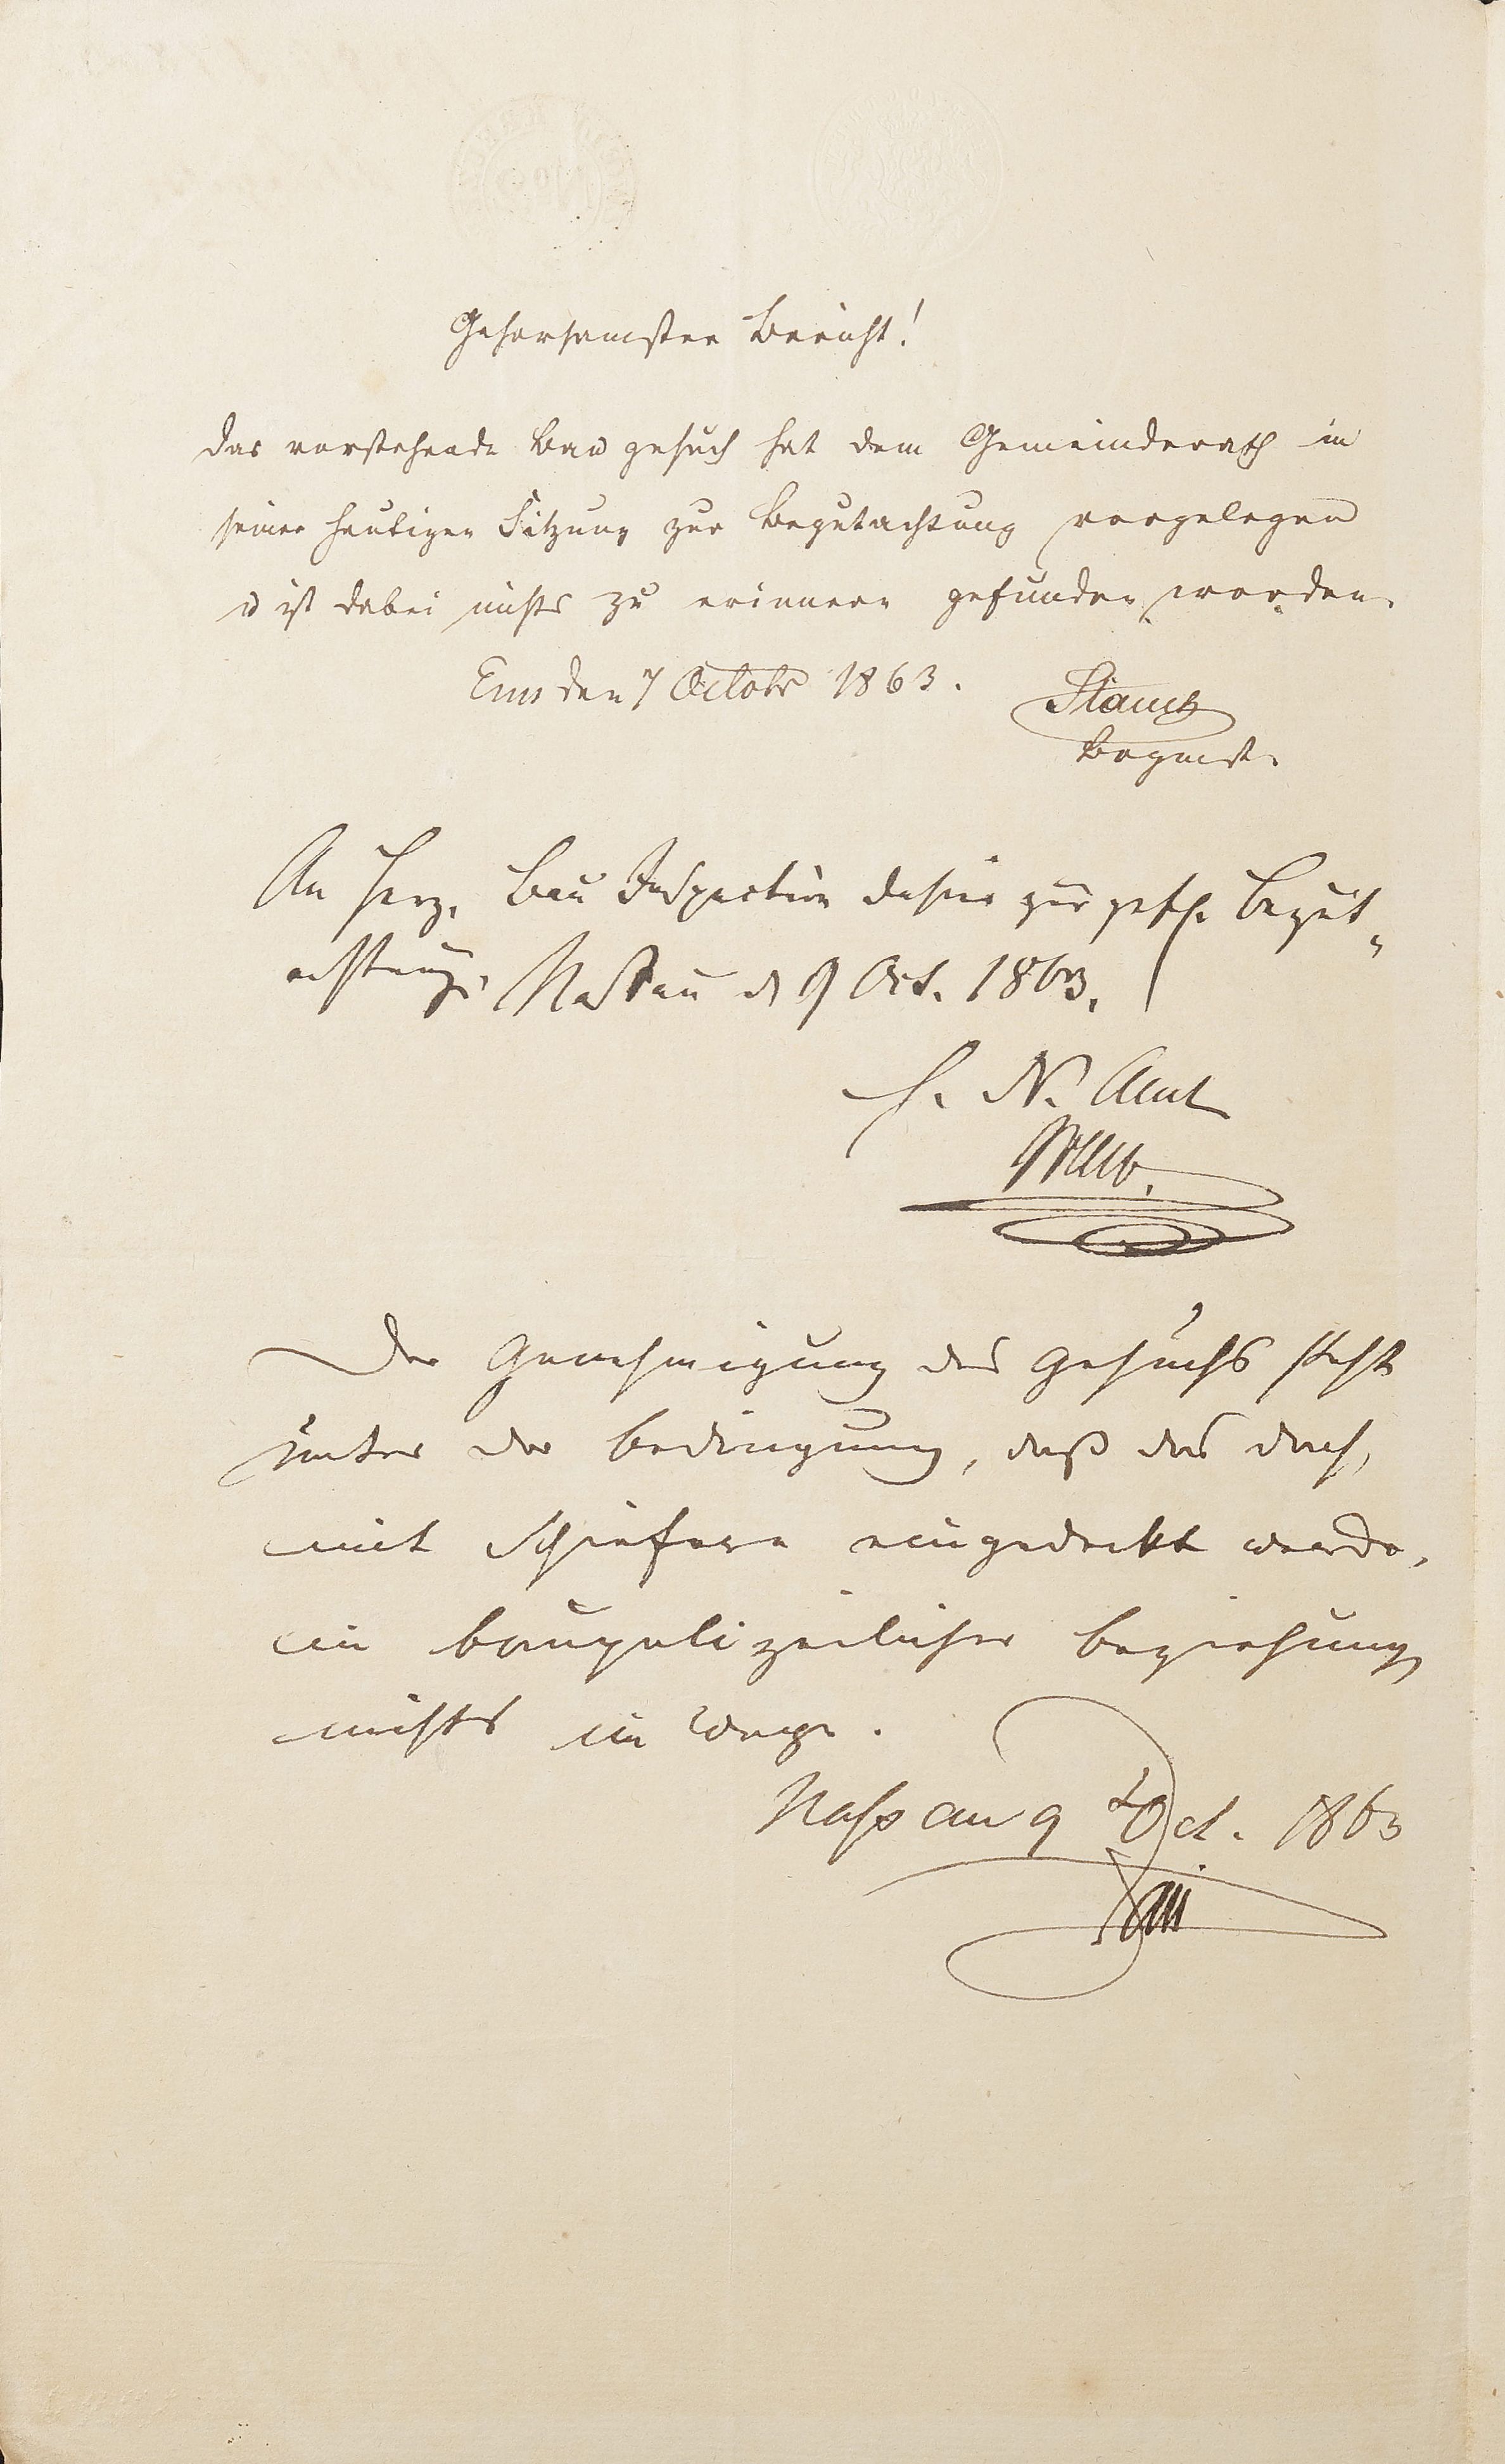 Gehorsamster Bericht!
Das vorstehende Baugesuch hat dem Gemeinderath in
seiner heutigen Sitzung zur Begutachtung vorgelegen
u ist dabei nichts zu erinnern gefunden worden.
Ems den 7 Octobr 1863.
Bürgmstr.
An Herz. Bau Inspection dahier zur gefl. Begut„
achtung. Nassau d 9 Oct. 1863.
H. N. Amt
Der Genehmigung des Gesuchs steht
unter der Bedingung, daß das Dach,
mit Schiefern eingedeckt werde,
in baupolizeilicher Beziehung
nichts im Wege.
Nassau 9 Oct. 1863